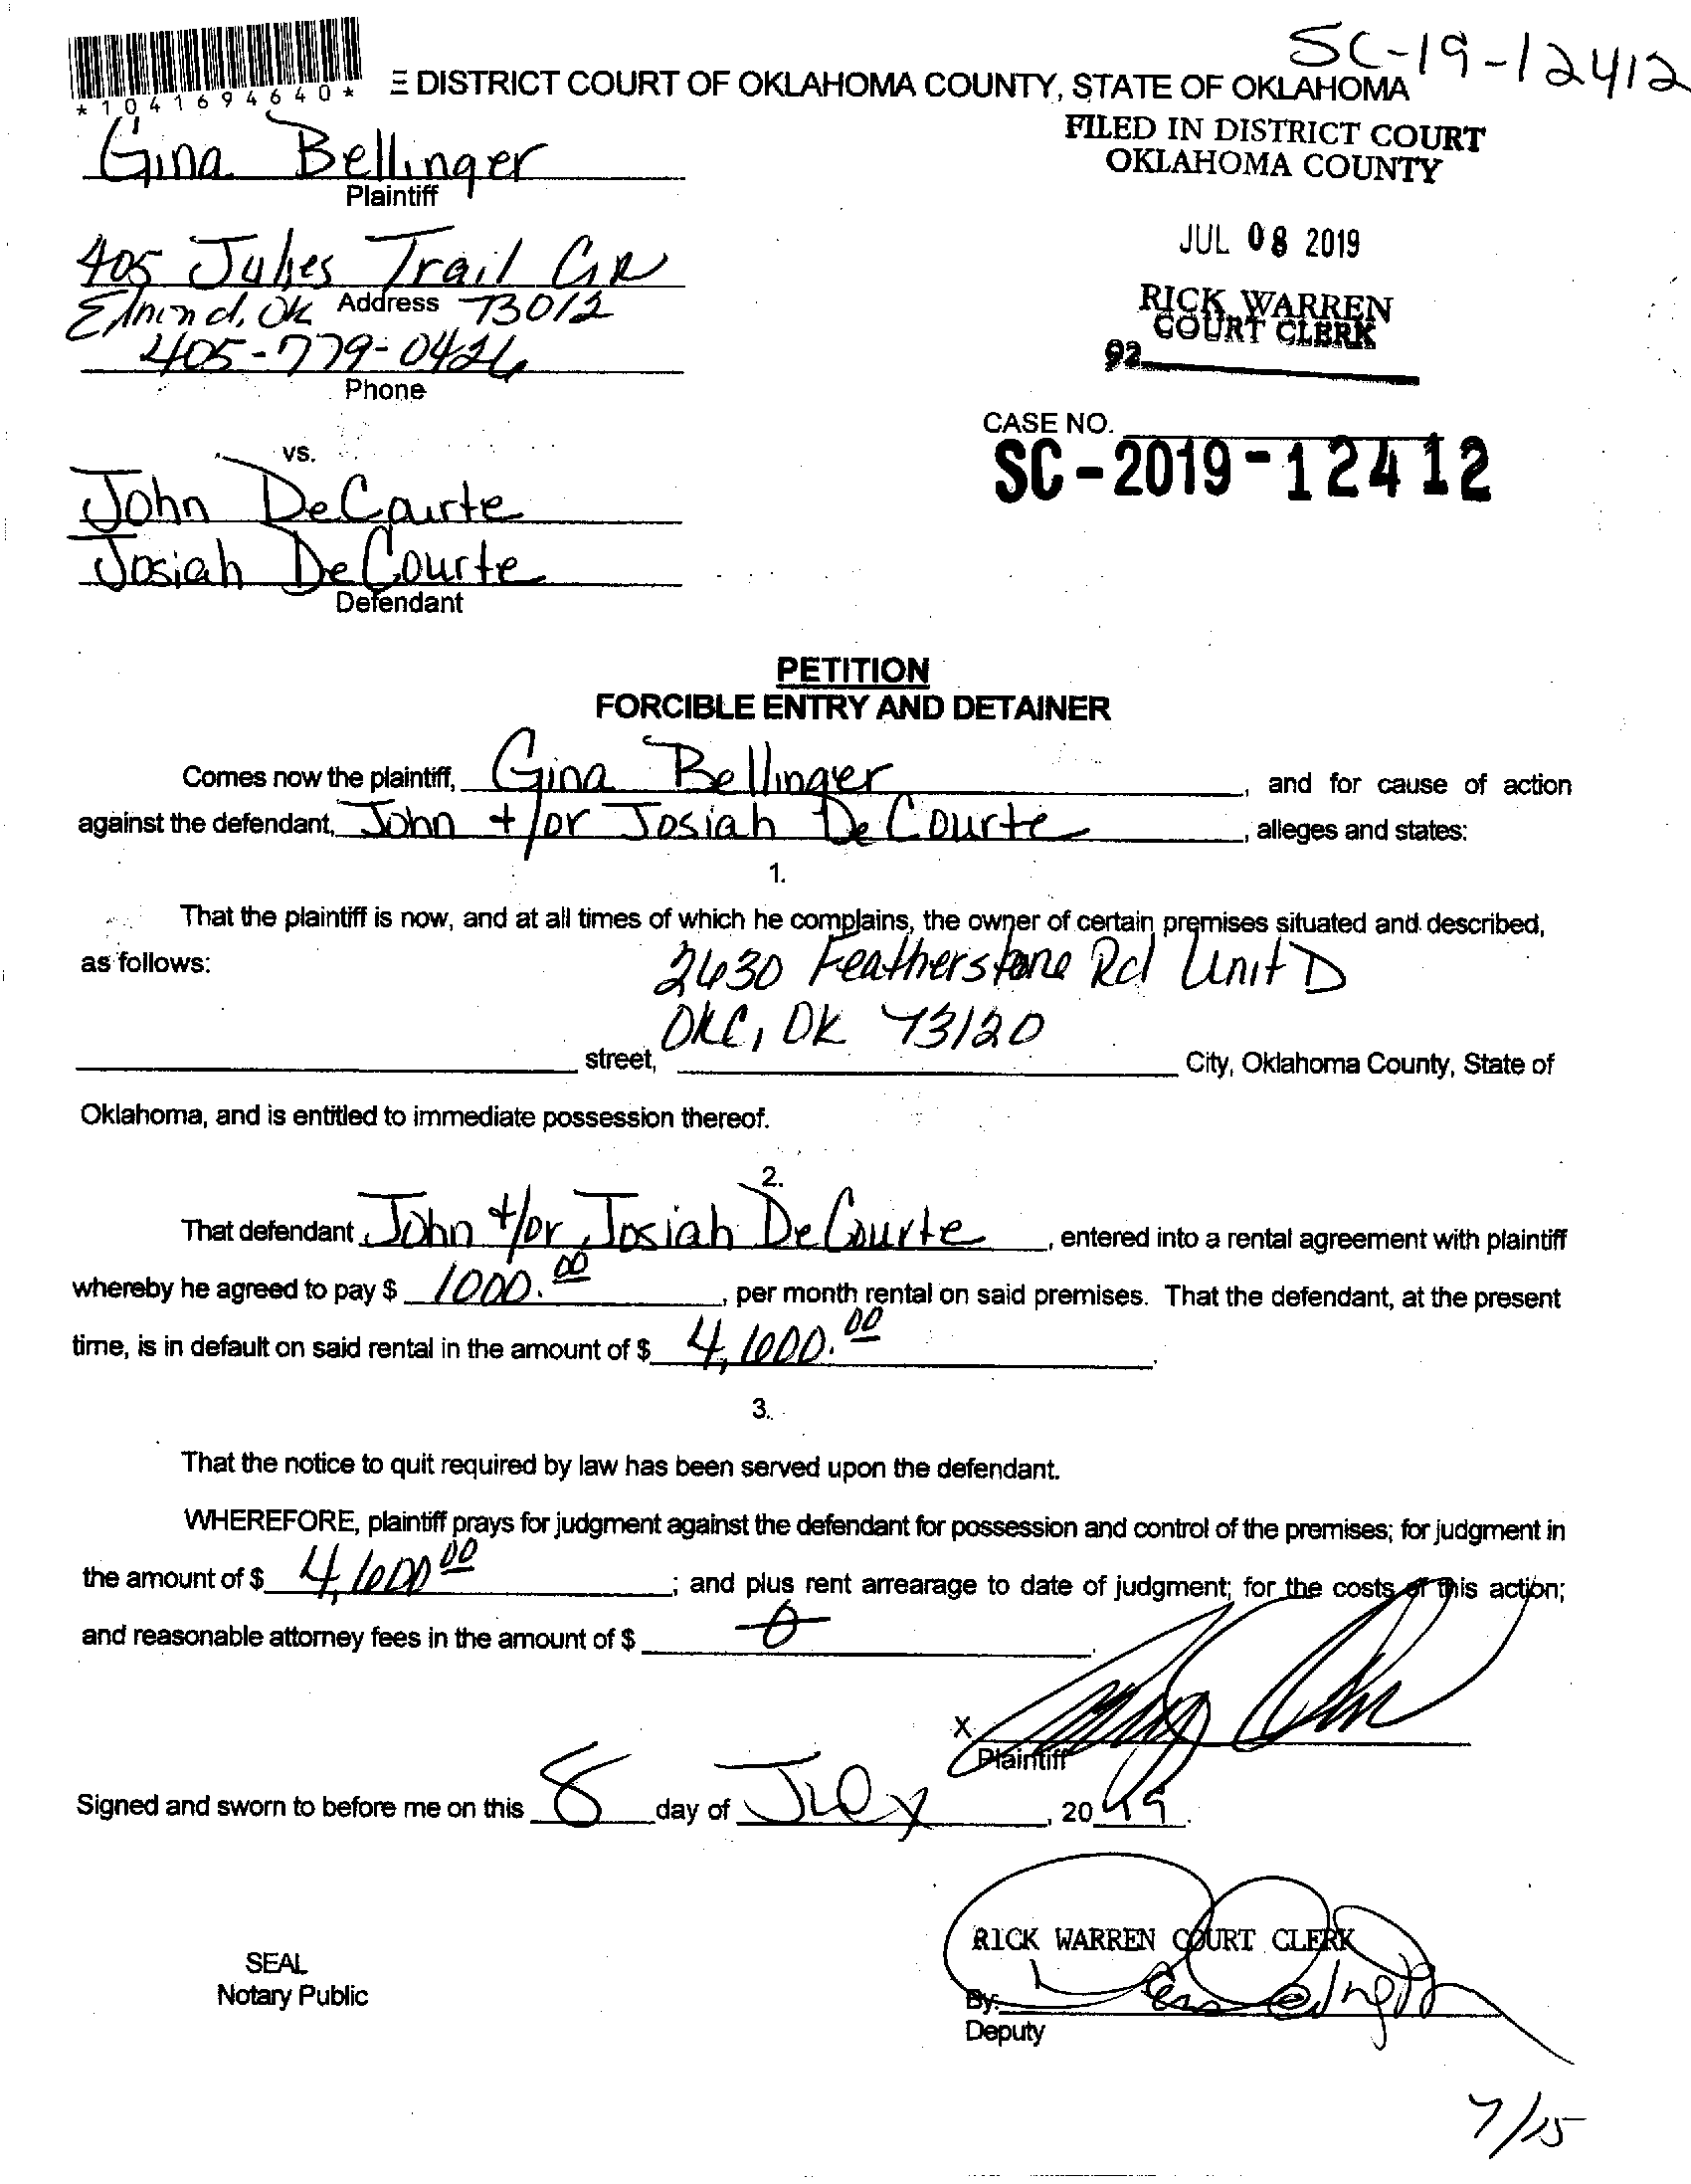 SC-19-12412
*1041694640*
E DISTRICT COURT OF OKLAHOMA COUNTY, STATE OF OKLAHOMA
FILED IN DISTRICT COURT
OKLAHOMA COUNTY
Gina Bellinger
Plaintiff
JUL 08 2019
405 Julies Trail Cir
Edmond, Ok Address 73012
RICK WARREN
COURT CLERK
92
405-779-0426
Phone
CASE NO.
SC-2019-12412
vs.
John DeCourte
Josiah DeCourte
Defendant
PETITION
FORCIBLE ENTRY AND DETAINER
Comes now the plaintiff, Gina Bellinger, and for cause of action
against the defendant, John +/or Josiah DeCourte, alleges and states:
1.
That the plaintiff is now, and at all times of which he complains, the owner of certain premises situated and described,
as follows: 2630 Featherstone Rd Unit D
OKC, OK 73120
street, City, Oklahoma County, State of
Oklahoma, and is entitled to immediate possession thereof.
2.
That defendant John +/or Josiah DeCourte, entered into a rental agreement with plaintiff
whereby he agreed to pay $ 1000.00, per month rental on said premises. That the defendant, at the present
time, is in default on said rental in the amount of $ 4,600.00.
3.
That the notice to quit required by law has been served upon the defendant.
WHEREFORE, plaintiff prays for judgment against the defendant for possession and control of the premises; for judgment in
the amount of $ 4,600 00; and plus rent arrearage to date of judgment; for the costs of this action;
and reasonable attorney fees in the amount of $ 0.
X
Plaintiff
Signed and sworn to before me on this 8 day of July, 2019.
RICK WARREN COURT CLERK
SEAL
Notary Public
By:
Deputy
7/15